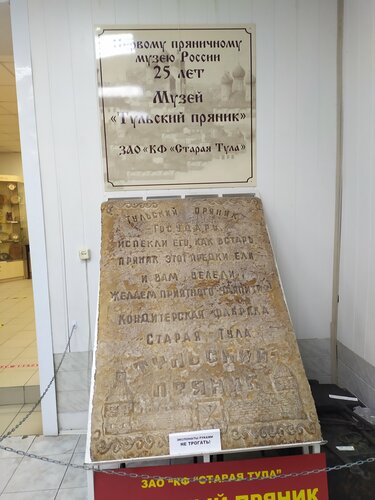 Первому пряничному
музею России
25 лет
Музей
«Тульский пряник»
ЗАО "КФ "Старая Тула"
ТУЛЬСКИЙ ПРЯНИК
ГОСУДАРЬ
ИСПЕКЛИ ЕГО, КАК ВСТАРЬ
ПРЯНИК ЭТОТ ПРЕДКИ ЕЛИ
И ВАМ ВЕЛЕЛИ
ЖЕЛАЕМ ПРИЯТНОГО АППЕТИТА
КОНДИТЕРСКАЯ ФАБРИКА
СТАРАЯ ТУЛА
ТУЛЬСКИЙ
ПРЯНИК
ЭКСПОНАТЫ РУКАМИ
НЕ ТРОГАТЬ!
ЗАО "КФ "СТАРАЯ ТУЛА"
ПРЯНИК